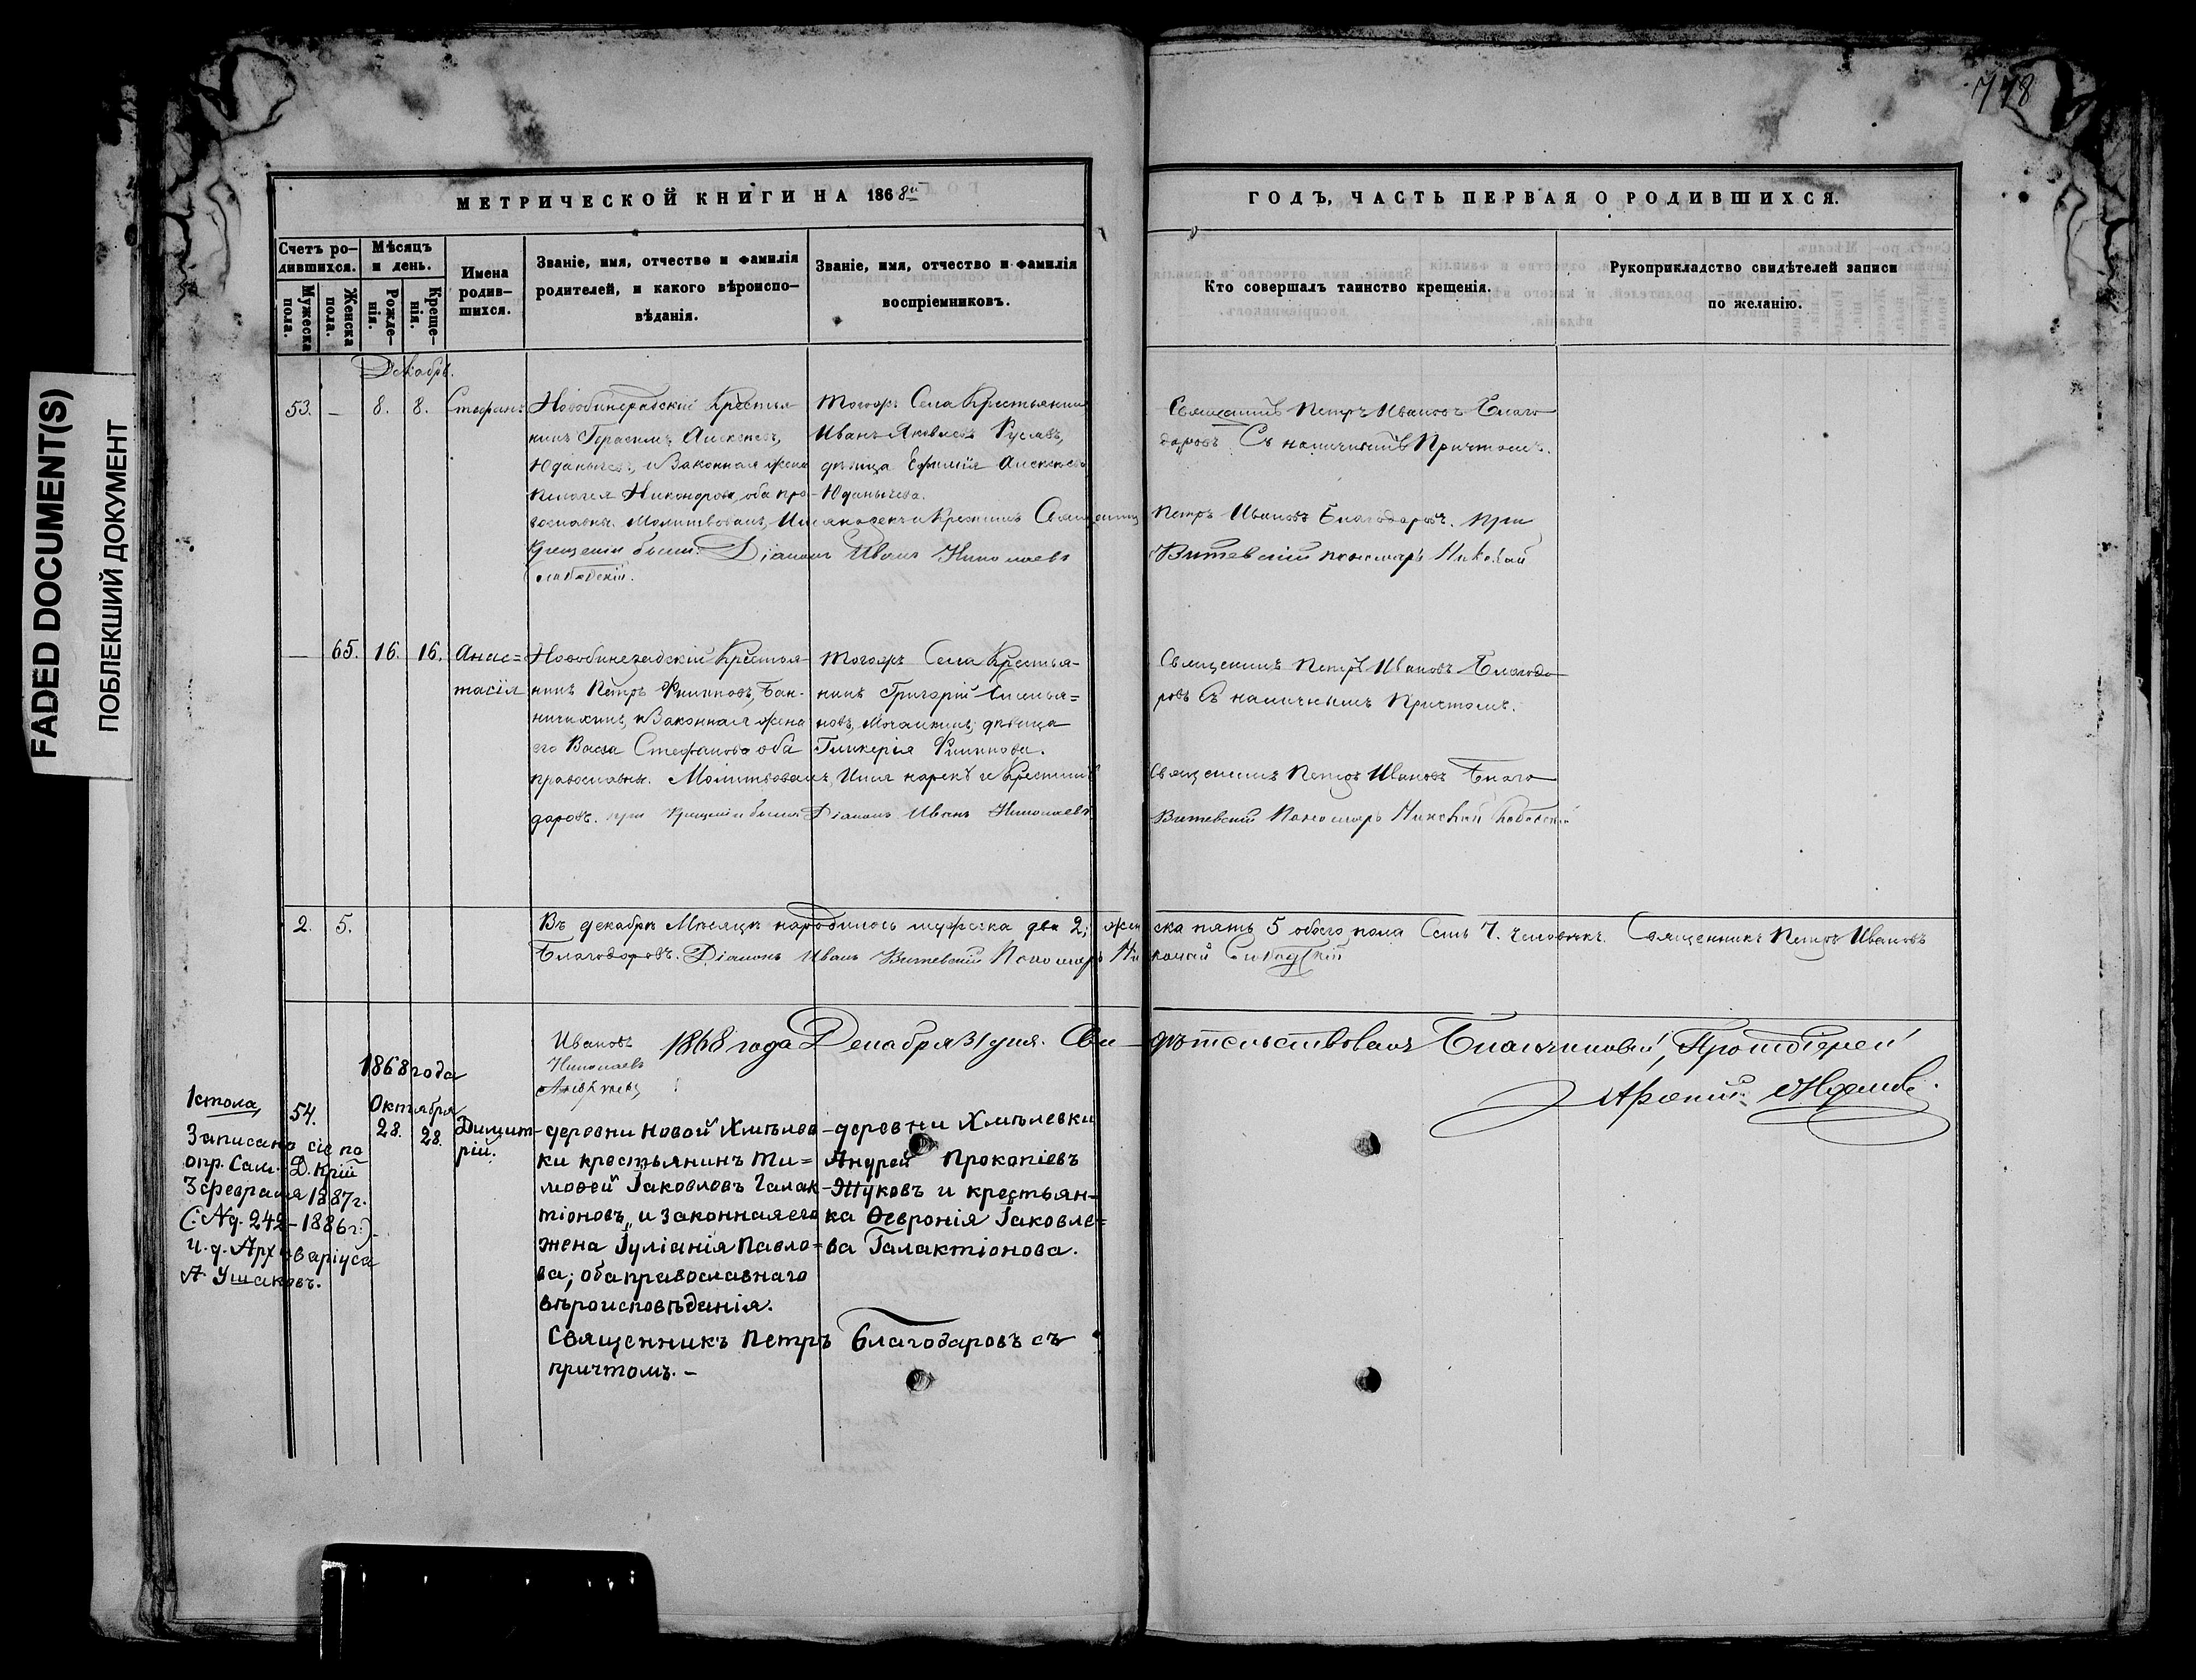 FADED DOCUMENT(S)
ПОБЛЕКШИЙ ДОКУМЕНТ
778
МЕТРИЧЕСКОЙ КНИГИ НА 1868й
ГОДЪ, ЧАСТЬ ПЕРВАЯ О РОДИВШИХСЯ.
Счетъ ро-
дившихся.
Мужеска
пола.
Женска
пола.
Мѣсяцъ
и день.
Рожде-
нія.
Креще-
нія.
Имена
родив-
шихся.
Званіе, имя, отчество и фамилія
родителей, и какого вѣроиспо-
вѣданія.
Званіе, имя, отчество и фамилія
воспріемниковъ.
Кто совершалъ таинство крещенія.
Рукоприкладство свидѣтелей записи
по желанію.
Декабрь.
53. – 8. 8. Стефанъ
крестья-
нинъ Герасимъ Алексѣевъ,
и Законная жена
Пелагея оба пра-
вославны. Молитвовалъ,
Крещеніи были: Діаконъ Иванъ Николаевъ
Тогожъ Села Крестьянинъ
Иванъ Яковлевъ
дѣвица Ефимія Алексѣева
Священникъ Петръ Ивановъ Благо
даровъ Съ наличнымъ Причтомъ.
Петръ Ивановъ Благодаровъ. При
Витевскій пономарь Николай
– 65. 16. 16. Анас=
тасія
Крестья-
нинъ Петръ Филиповъ,
и Законная жена
его Васса Стефанова оба
православны. Молитвовалъ, Имя нарекъ и Крестилъ
даровъ. при Крещеніи были Діаконъ Иванъ Николаевъ
Тогожъ Села Крестья-
нинъ Григорій Емелья=
новъ, дѣвица
Гликерія Филипова.
Священникъ Петръ Ивановъ Благода
ровъ Съ наличнымъ Причтомъ.
Священникъ Петръ Ивановъ Благо
Витевскій Пономарь Николай
2. 5. Въ декабрѣ Мѣсяцѣ народилось мужеска два 2; женска пять 5 обоего пола Семь 7. человѣкъ. Священникъ Петръ Ивановъ
Благодаровъ. Діаконъ Иванъ Витевскій Пономарь Николай
Ивановъ
Николаевъ
1868 года Декабря 31 дня. Свидѣтельствовалъ Благочинный, Протоіерей
1868 года
Октября
54. 28. 28. Димит-
рій.
деревни Новой Хмѣлев-
ки крестьянинъ Ти=
моѳей Іаковлевъ Галак-
тіоновъ, и законная его
жена Іуліанія Павло=
ва; оба православнаго
вѣроисповѣданія.
деревни Хмѣлевки
Андрей Прокопіевъ
Жуковъ и крестьян-
ка Ѳевронія Іаковле=
ва Галактіонова.
Священникъ Петръ Благодаровъ съ
причтомъ. –
1 стола,
Записано сіе по
опр. Сам. Д. Крій
3 февраля 1887 г.
(: № д. 242 – 1886 г:).
и. д. Архиваріуса
А Ушаковъ.